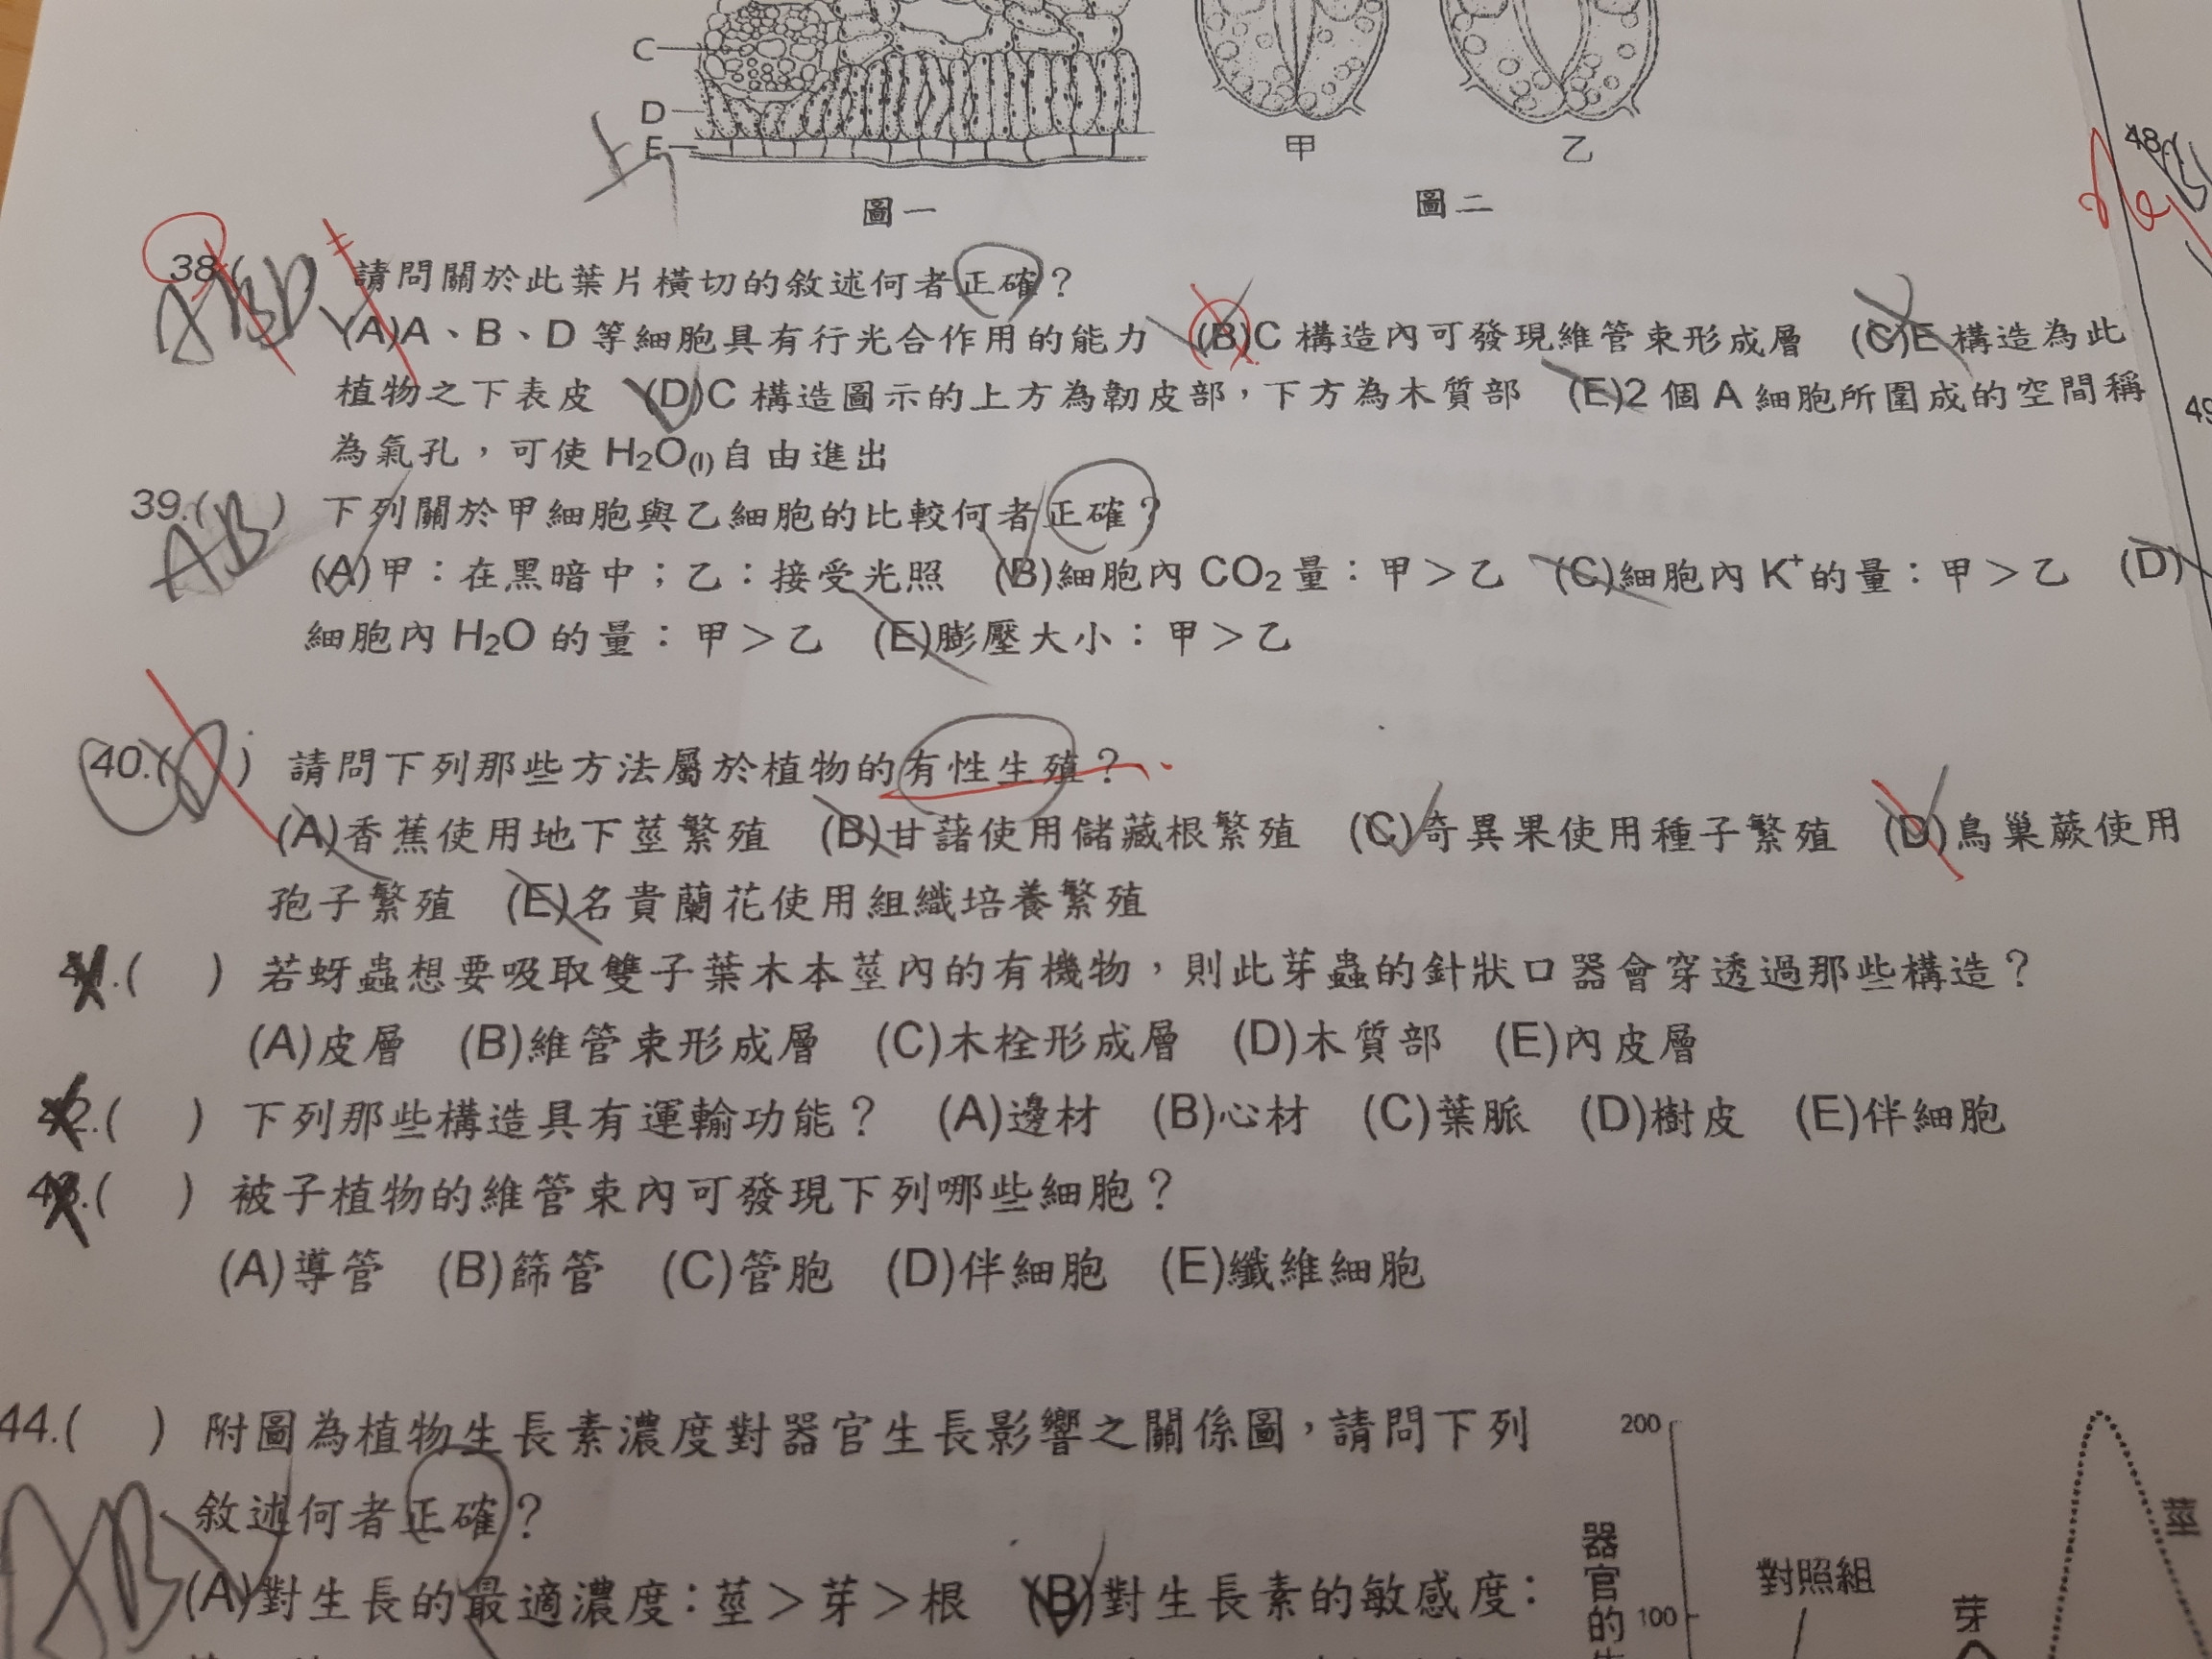 C
D
E
甲
乙
圖一
圖二
48.
38.( ) 請問關於此葉片橫切的敘述何者正確？
ABD
(A)A、B、D 等細胞具有行光合作用的能力 (B)C 構造內可發現維管束形成層 (C)E 構造為此
植物之下表皮 (D)C 構造圖示的上方為韌皮部，下方為木質部 (E)2 個 A 細胞所圍成的空間稱
為氣孔，可使 H₂O(l)自由進出
49
39.( ) 下列關於甲細胞與乙細胞的比較何者正確？
AB
(A)甲：在黑暗中；乙：接受光照 (B)細胞內 CO₂ 量：甲＞乙 (C)細胞內 K⁺的量：甲＞乙 (D)
細胞內 H₂O 的量：甲＞乙 (E)膨壓大小：甲＞乙
40.( ) 請問下列那些方法屬於植物的有性生殖？
(A)香蕉使用地下莖繁殖 (B)甘藷使用儲藏根繁殖 (C)奇異果使用種子繁殖 (D)鳥巢蕨使用
孢子繁殖 (E)名貴蘭花使用組織培養繁殖
41.( ) 若蚜蟲想要吸取雙子葉木本莖內的有機物，則此芽蟲的針狀口器會穿透過那些構造？
(A)皮層 (B)維管束形成層 (C)木栓形成層 (D)木質部 (E)內皮層
42.( ) 下列那些構造具有運輸功能？ (A)邊材 (B)心材 (C)葉脈 (D)樹皮 (E)伴細胞
43.( ) 被子植物的維管束內可發現下列哪些細胞？
(A)導管 (B)篩管 (C)管胞 (D)伴細胞 (E)纖維細胞
44.( ) 附圖為植物生長素濃度對器官生長影響之關係圖，請問下列
敘述何者正確？
AB
(A)對生長的最適濃度：莖＞芽＞根 (B)對生長素的敏感度：
200
100
器官的
對照組
芽
莖